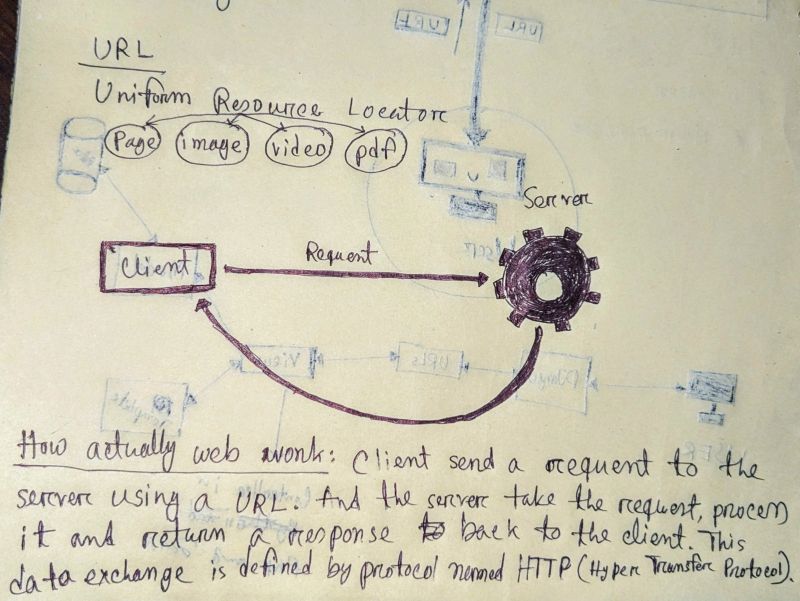 URL
Uniform Resource Locator
Page image video pdf
Server
Client Request
How actually web work: Client send a request to the
server using a URL. And the server take the request, process
it and return a response back to the client. This
data exchange is defined by protocol named HTTP (Hyper Transfer Protocol).